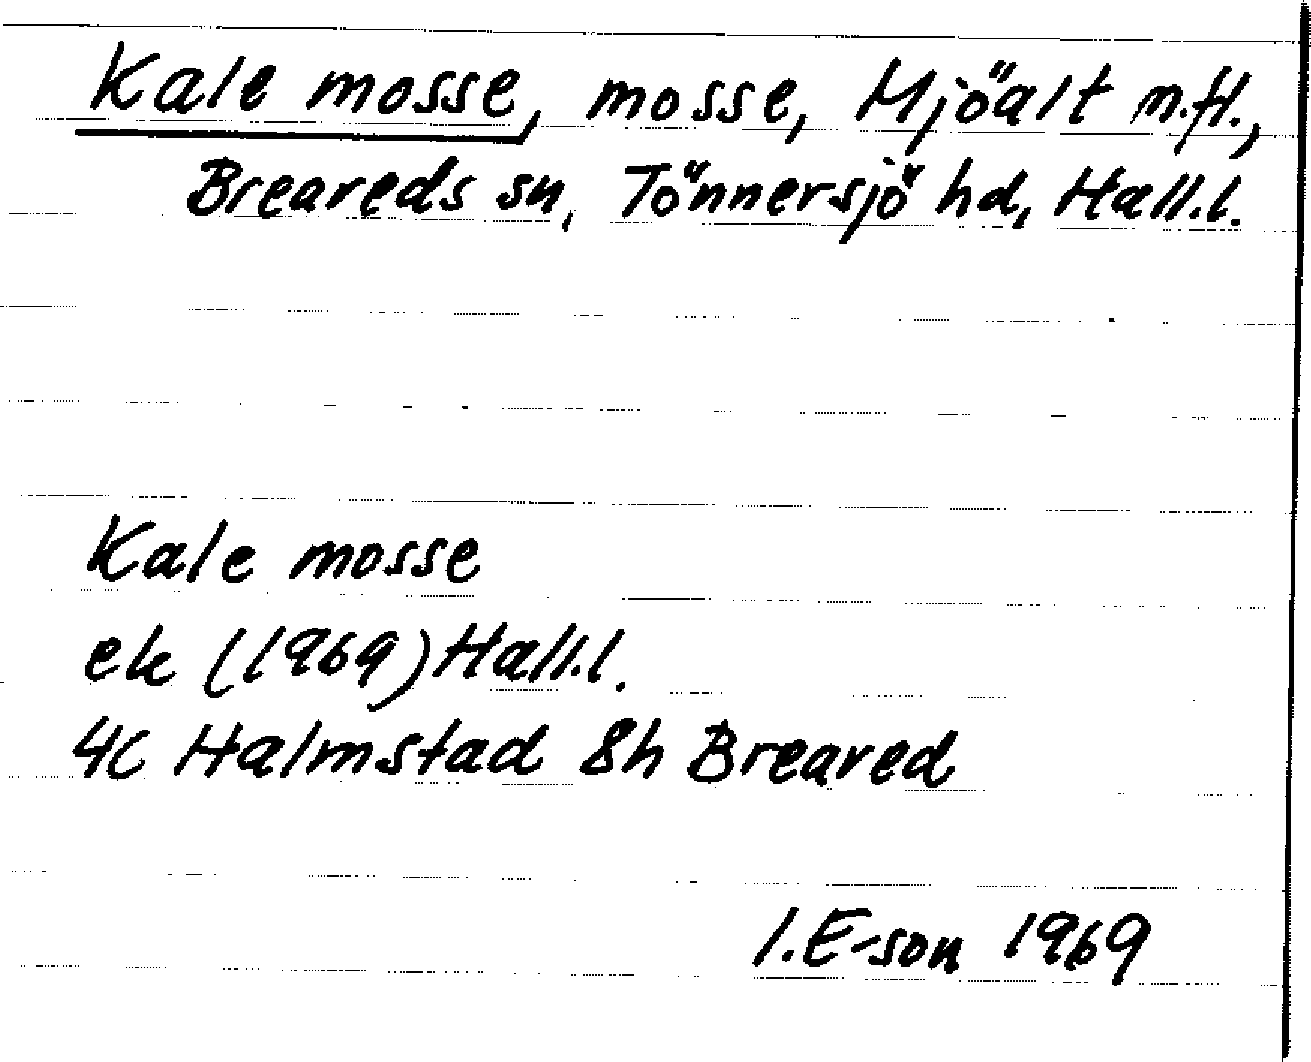 Kale mosse, mosse, Mjöalt m.fl.,
Breareds sn, Tönnersjö hd, Hall.l.
Kale mosse
ek (1969) Hall.l.
4C Halmstad 8h Breared
I.E-son 1969